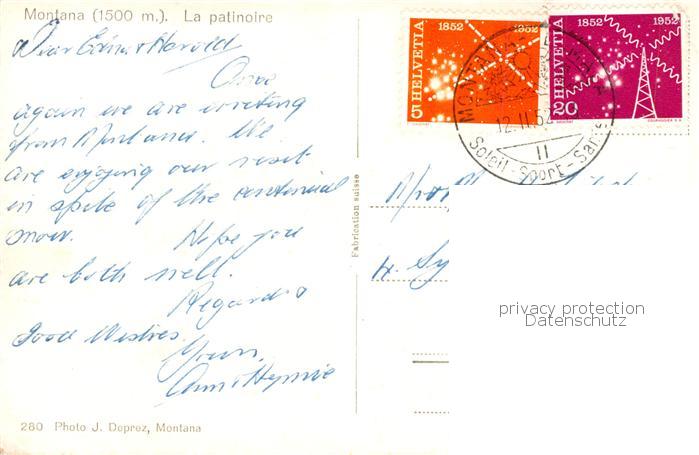 Montana (1500 m.). La patinoire
Dear Edna & Harold
Once
again we are writing
from Montana. We
are enjoying our visit
in spite of the continual
snow. Hope you
are both well.
Regards &
Good Wishes.
Yours,
Ann & Hymie
280 Photo J. Deprez, Montana
Fabrication suisse
1852 1952
HELVETIA
5
1852 1952
HELVETIA
20
COURVOISIER S.A.
MONTANA
12.II.52
II
Soleil - Sport - Santé
4. Sy
privacy protection
Datenschutz